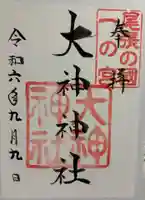 奉拝
尾張の国
一の宮
大神神社
大神
神社
令和六年九月九日